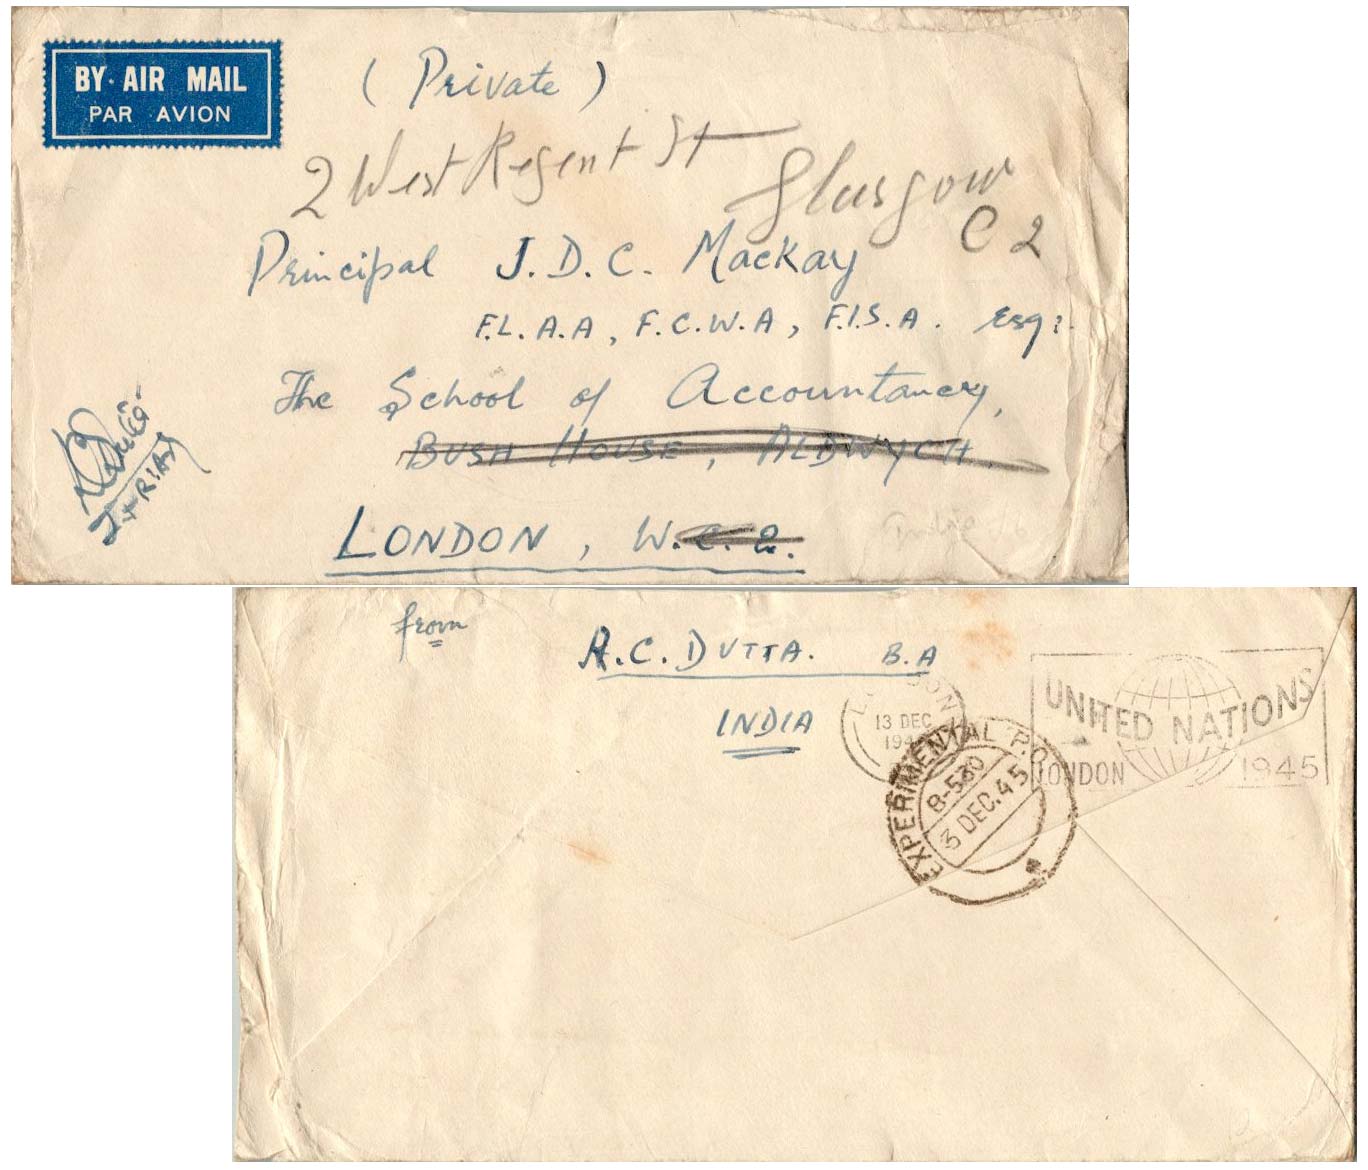 BY AIR MAIL
PAR AVION
( Private )
2 West Regent St
Glasgow
C 2
Principal J. D. C. Mackay
F.L.A.A, F.C.W.A, F.I.S.A. Esq:.
The School of Accountancy,
BUSH HOUSE, ALDWYCH.
LONDON, W.C.2.
from
A.C. DUTTA. B.A
INDIA
LONDON
13 DEC
194
UNITED NATIONS
LONDON 1945
EXPERIMENTAL P.O.
8-530
3 DEC.45